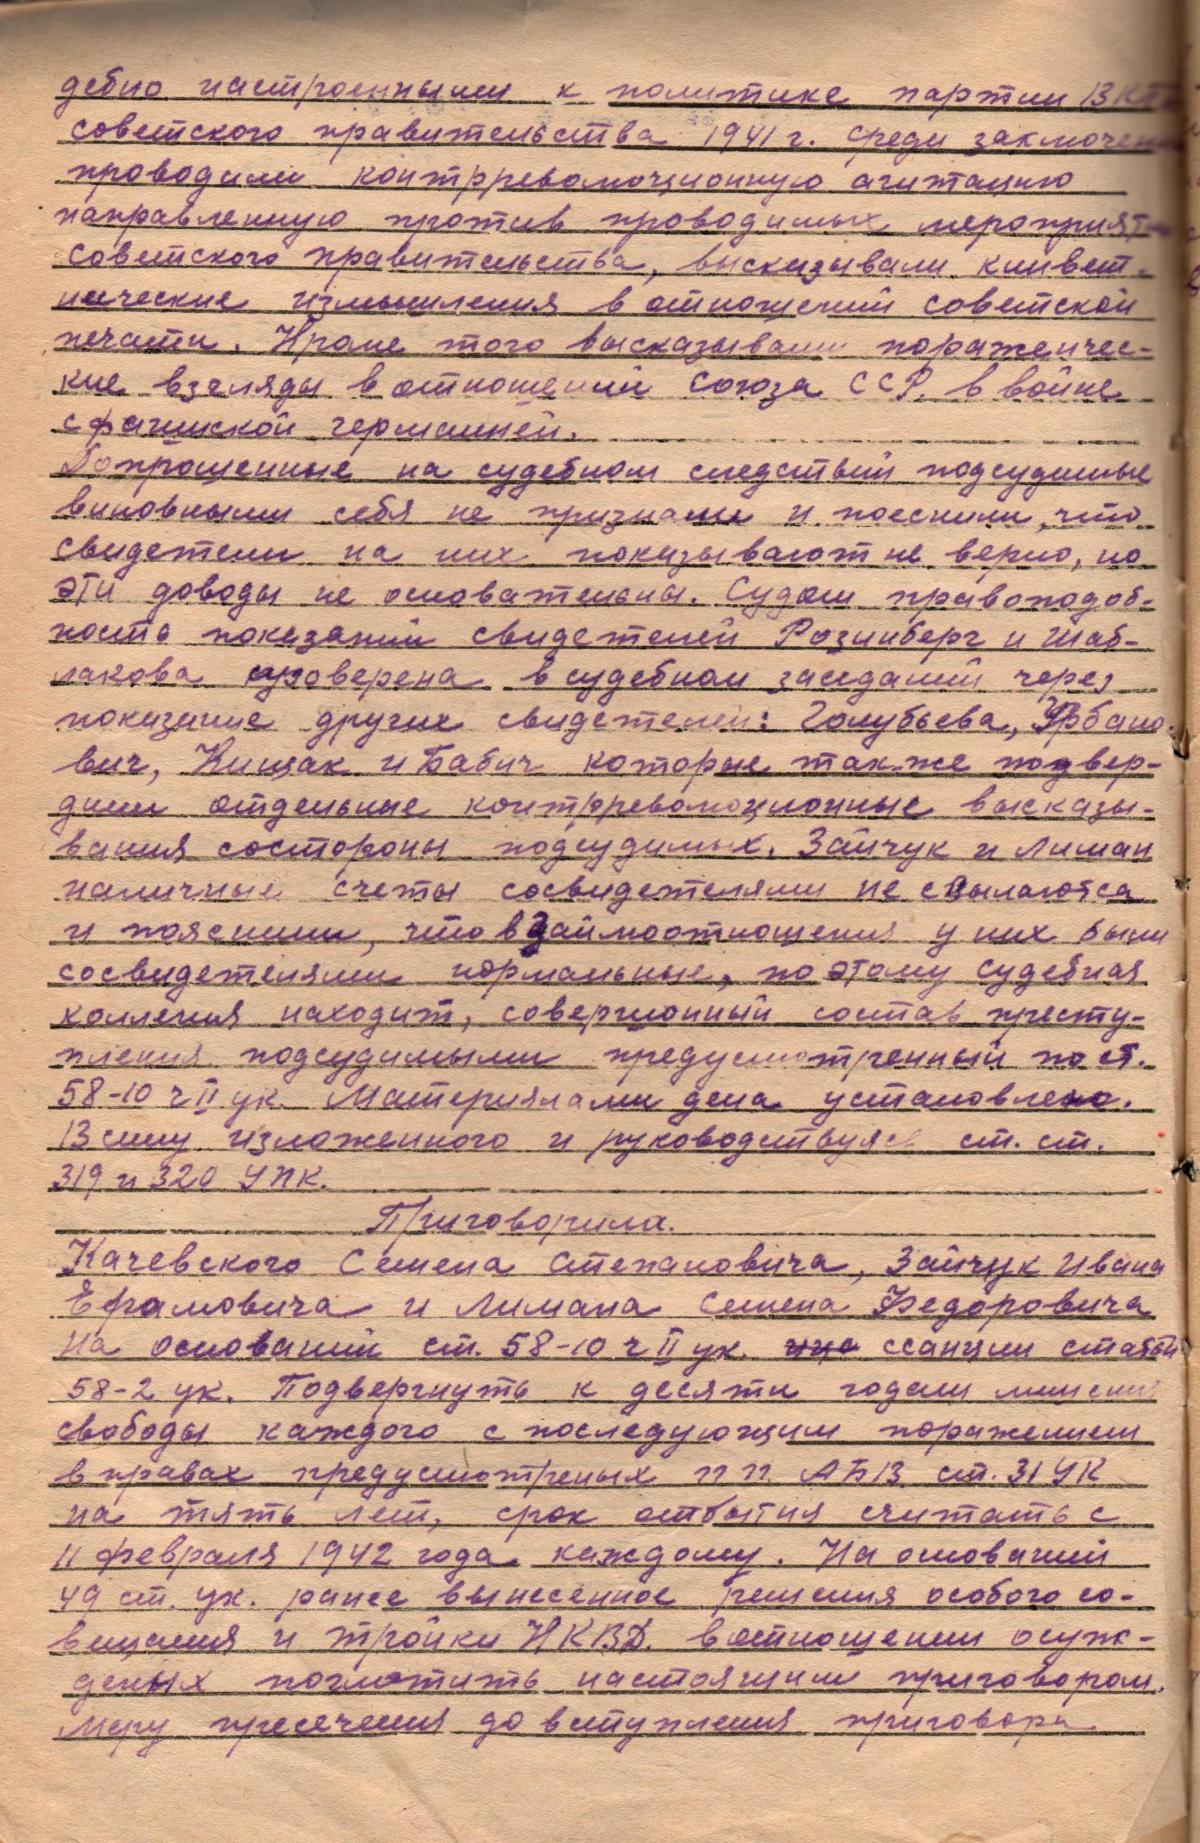 дебно настроенными к политике партии ВКП
советского правительства 1941 г. среди заключен
проводили контрреволюционную агитацию
направленную против проводимых мероприяти
советского правительства, высказывали кливет-
нические измышления в отношений советской
печати. Кроме того высказывали пораженчес-
кие взгляды в отношений союза ССР. в войне
с фашиской германией.
Допрошенные на судебном следствий подсудимые
виновными себя не признали и поеснили, что
свидетели на них показывают не верно, но
эти доводы не основательны. Судом правоподоб-
ность показаний свидетелей Розинберг и Шаб-
лакова проверена в судебном заседаний через
показание других свидетелей: Голубьева, Урбано-
вич, Кищак и Бабич которые так же подвер-
дили отдельные контрреволюционные высказы-
вания состороны подсудимых. Зайчук и Лиман
наличные счеты сосвидетелями не ссылаются
и пояснили, что взаймоотношения у них были
сосвидетелями нормальные, по этому судебная
коллегия находит, совершонный состав престу-
пления подсудимыми предусмотренный по ст.
58-10 ч II ук. Материялами дела установлено.
В силу изложенного и руководствуясь ст. ст.
319 и 320 УПК.
Приговорила.
Качевского Семена Степановича, Зайчук Ивана
Ерамовича и Лимана Семена Федоровича
на оснований ст. 58-10 ч II ук. ссанкции статьи
58-2 ук. Подвергнуть к десяти годам лишения
свободы каждого с последующим поражением
в правах предусмотреных п п. АБВ ст. 31 УК
на пять лет, срок отбытия считать с
11 февраля 1942 года каждому. На оснований
49 ст. ук. ранее вынесенное решения особого со-
вещания и тройки НКВД. в отношении осуж-
деных поглотить настоящим приговором.
Меру пресечения до вступления приговора